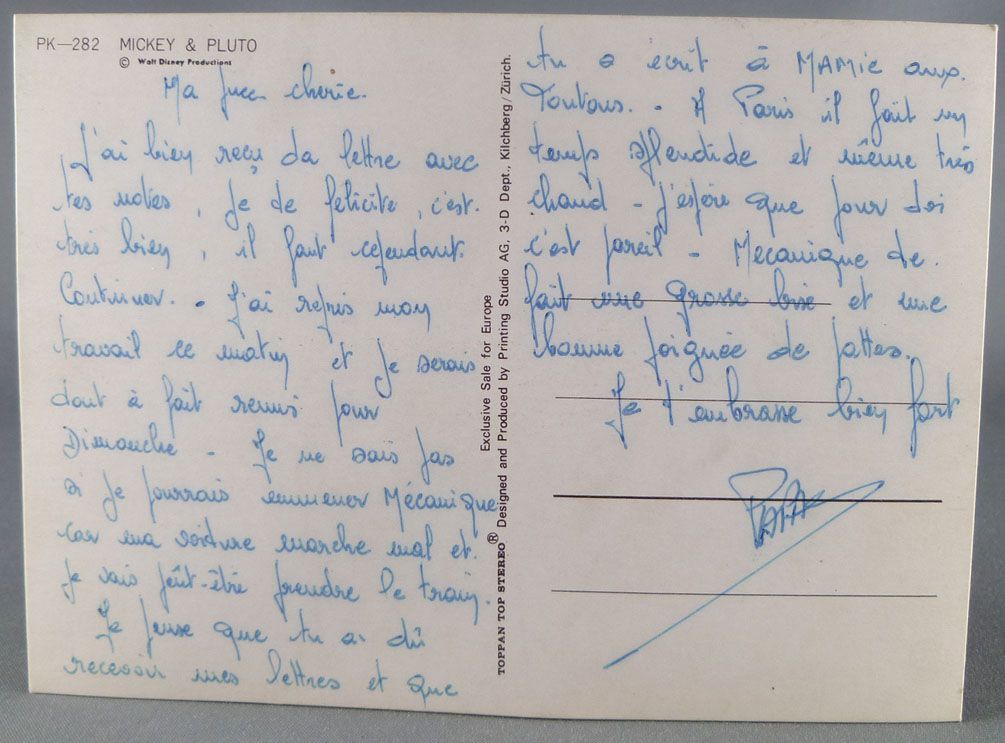 PK—282 MICKEY & PLUTO
© Walt Disney Productions
Ma chérie.
J'ai bien reçu ta lettre avec
tes notes, je te félicite, c'est.
très bien, il faut cependant.
Continuer. - J'ai repris mon
travail ce matin et je serais
tout à fait remis pour
Dimanche - Je ne sais pas
si je pourrais emmener Mécanique
car ma voiture marche mal et.
je vais peût-être prendre le train.
Je pense que tu as dû
recevoir mes lettres et que
Exclusive Sale for Europe
TOPPAN TOP STEREO® Designed and Produced by Printing Studio AG, 3-D Dept., Kilchberg/Zürich.
tu a écrit à MAMIE aux.
Toutous. - A Paris il faît un
temps splendide et même très
chaud - j'espère que pour toi
c'est pareil - Mecanique te.
fait une grosse bise et une
bonne poignée de pattes.
Je t'embrasse bien fort
PAPA